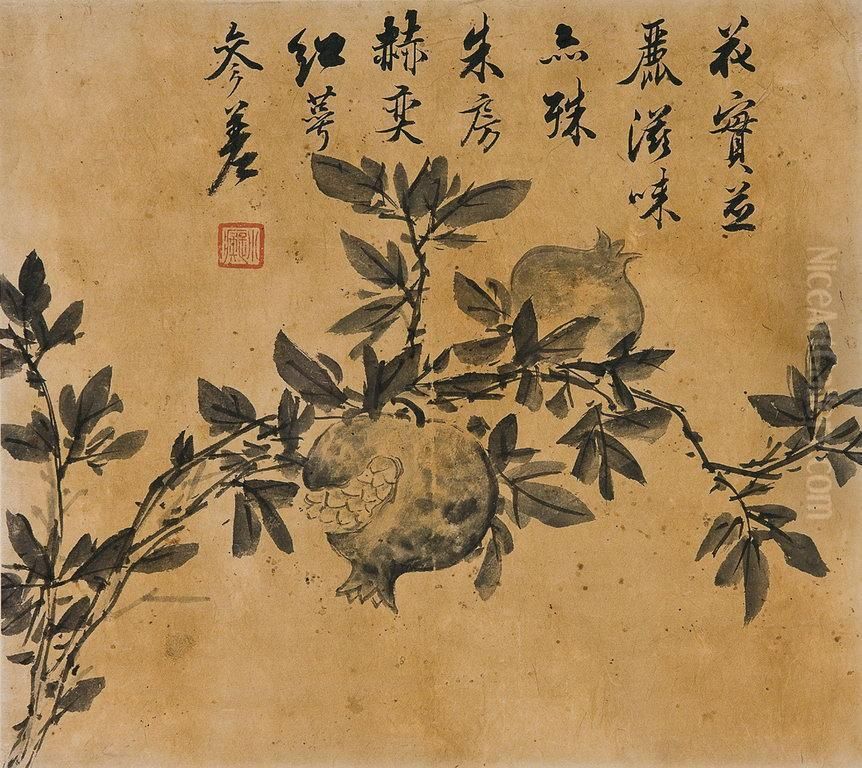 花實並
麗滋味
亦殊
朱房
赫奕
紅萼
參差
NiceArt
.com